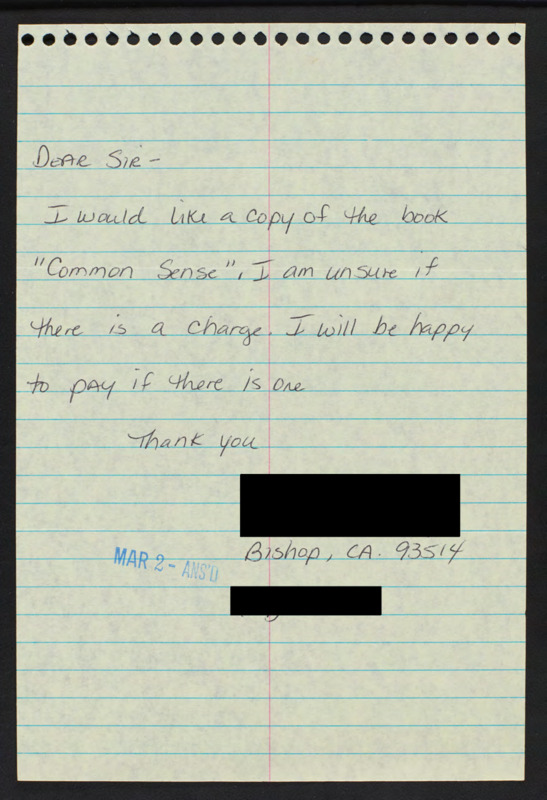 Dear Sir-
I would like a copy of the book
"Common Sense". I am unsure if
there is a charge. I will be happy
to pay if there is one
Thank you
Bishop, CA. 93514
MAR 2 - ANS'D